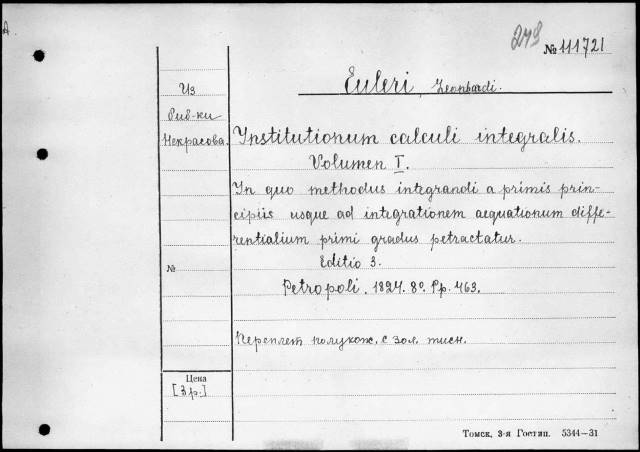 А
249
№ 111721
Euleri, Leonhardi.
Из
Биб-ки
Некрасова.
Institutionum calculi integralis.
Volumen I.
In quo methodus integrandi a primis prin-
cipiis usque ad integrationem aequationum diffe-
rentialium primi gradus petractatur.
Editio 3.
№
Petropoli. 1824. 8º. Pp. 463.
Переплет полукож. с зол. тисн.
Цена
[3 р.]
Томск, 3-я Гостип. 5344—31